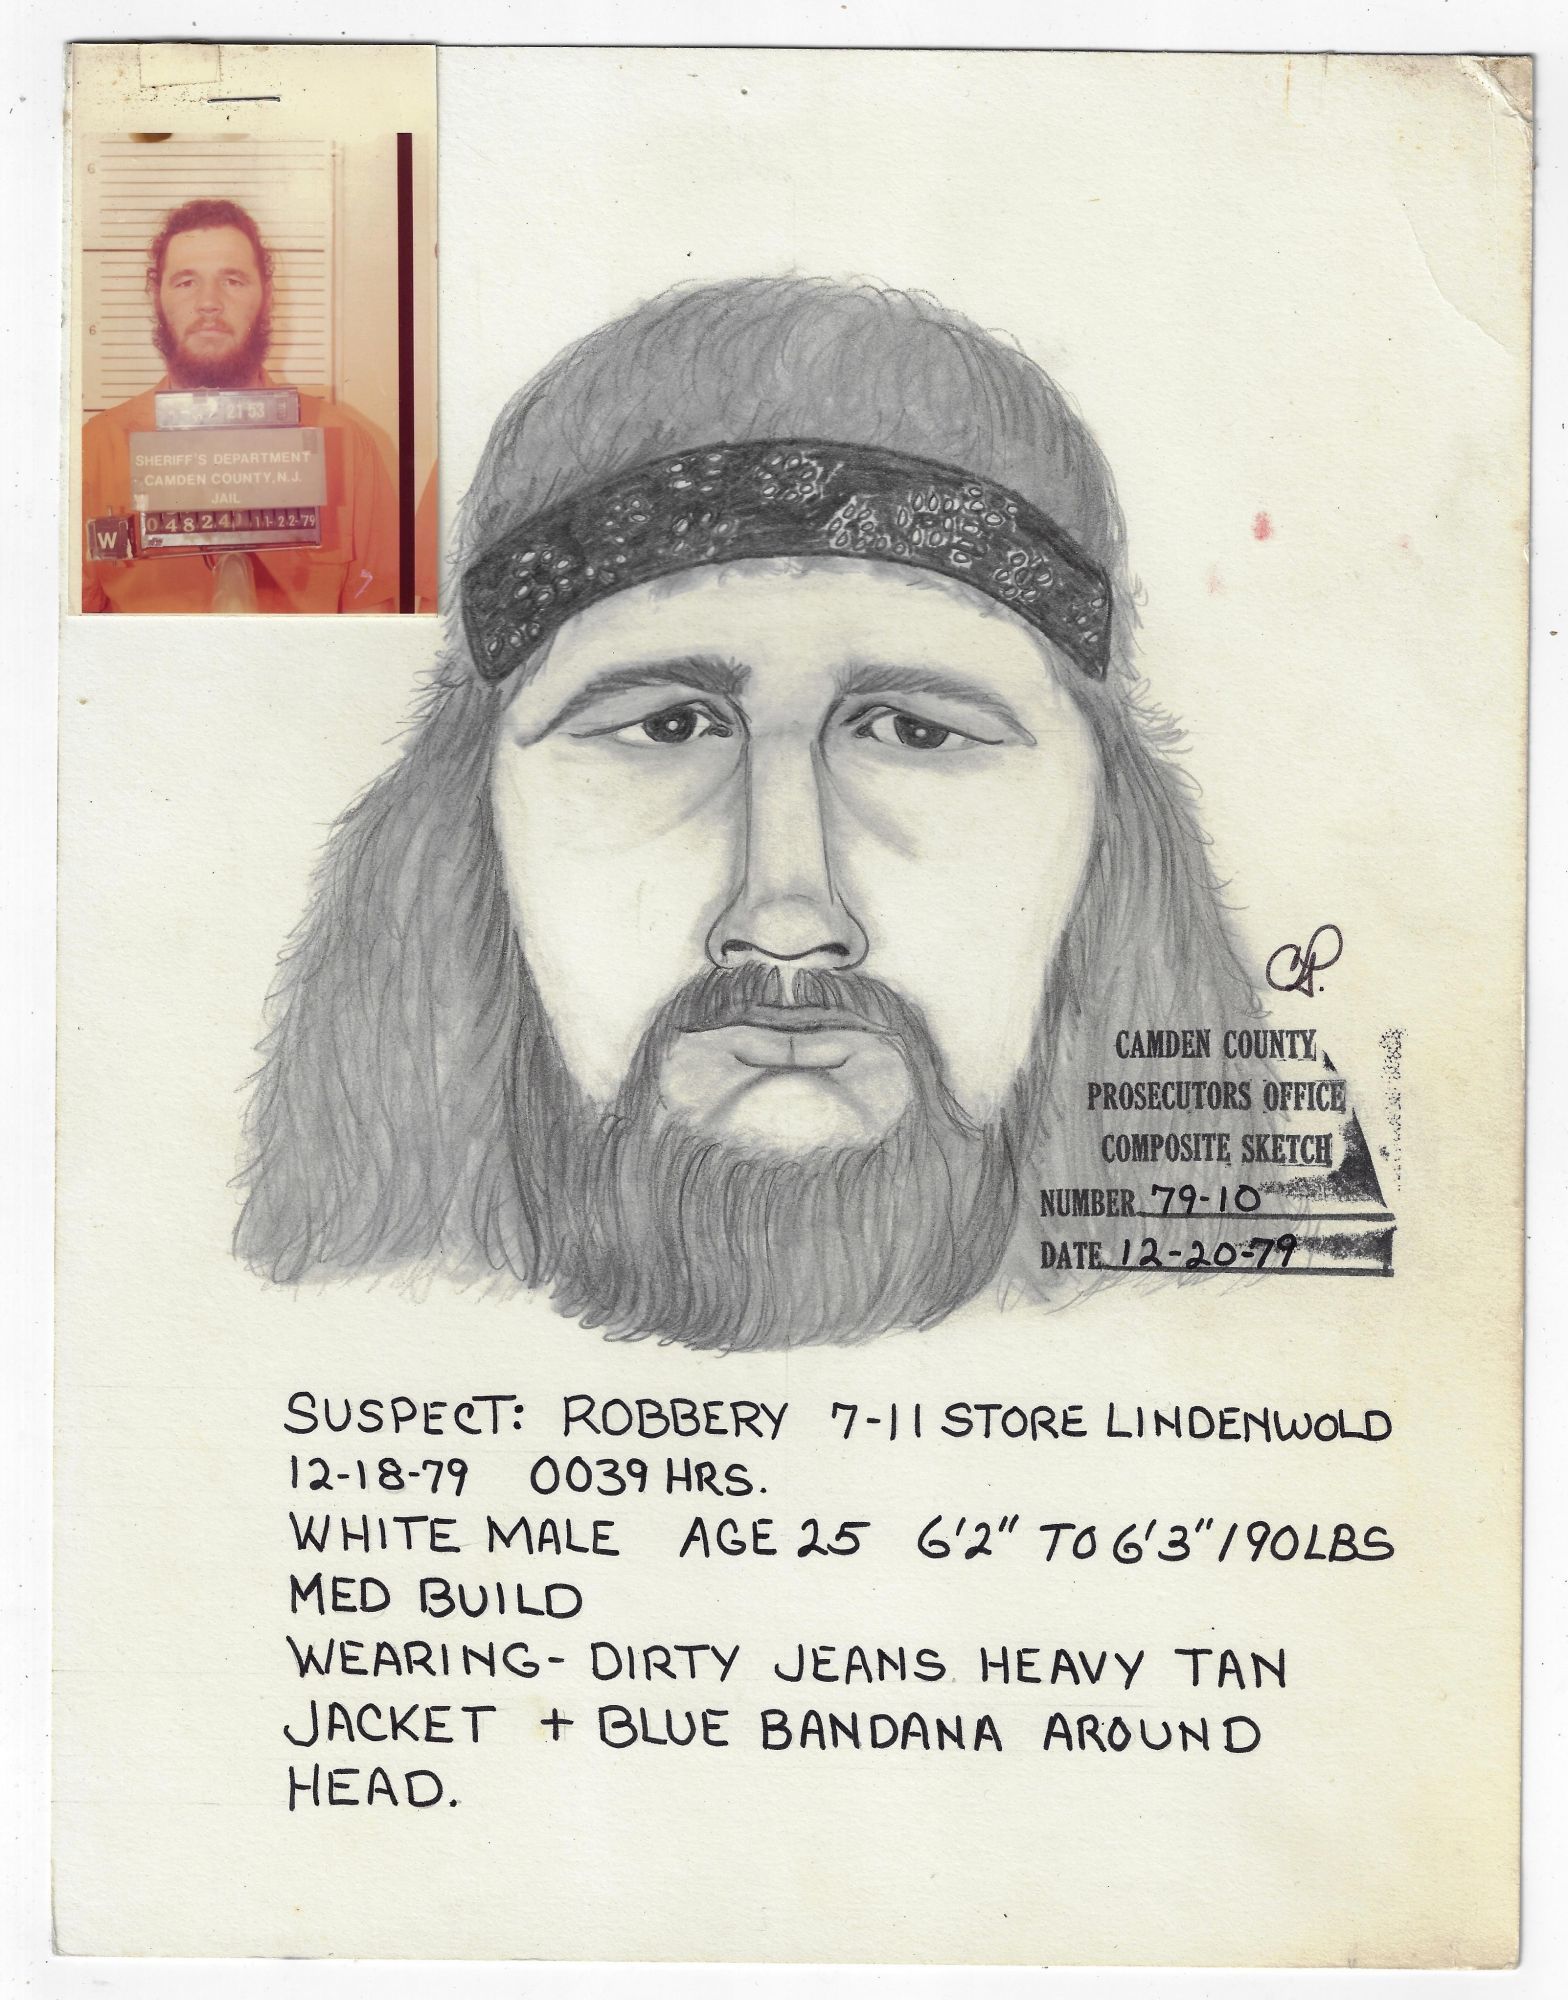 6
6
21 53
SHERIFF'S DEPARTMENT
CAMDEN COUNTY, N.J.
JAIL
04824 11-22-79
W
CAMDEN COUNTY
PROSECUTORS OFFICE
COMPOSITE SKETCH
NUMBER 79-10
DATE 12-20-79
SUSPECT: ROBBERY 7-11 STORE LINDENWOLD
12-18-79 0039 HRS.
WHITE MALE AGE 25 6'2" TO 6'3" 190LBS
MED BUILD
WEARING- DIRTY JEANS HEAVY TAN
JACKET + BLUE BANDANA AROUND
HEAD.